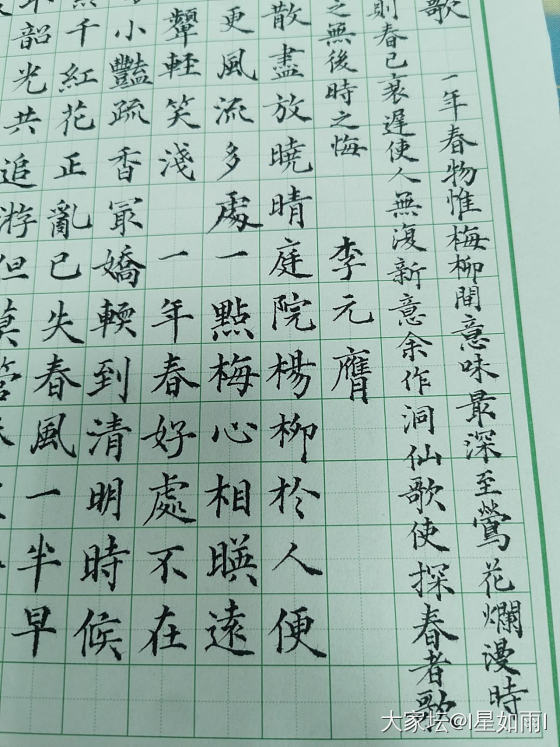 歌 一年春物惟梅柳間意味最深至鶯花爛漫時
則春已衰遲使人無復新意余作洞仙歌使探春者歌
之無後時之悔 李元膺
散盡放曉晴庭院楊柳於人便
更風流多處一點梅心相暎遠
顰輕笑淺 一年春好處不在
小豔疏香冣嬌輭到清明時候
千紅花正亂已失春風一半早
韶光共追游但莫管
大家坛@l星如雨l